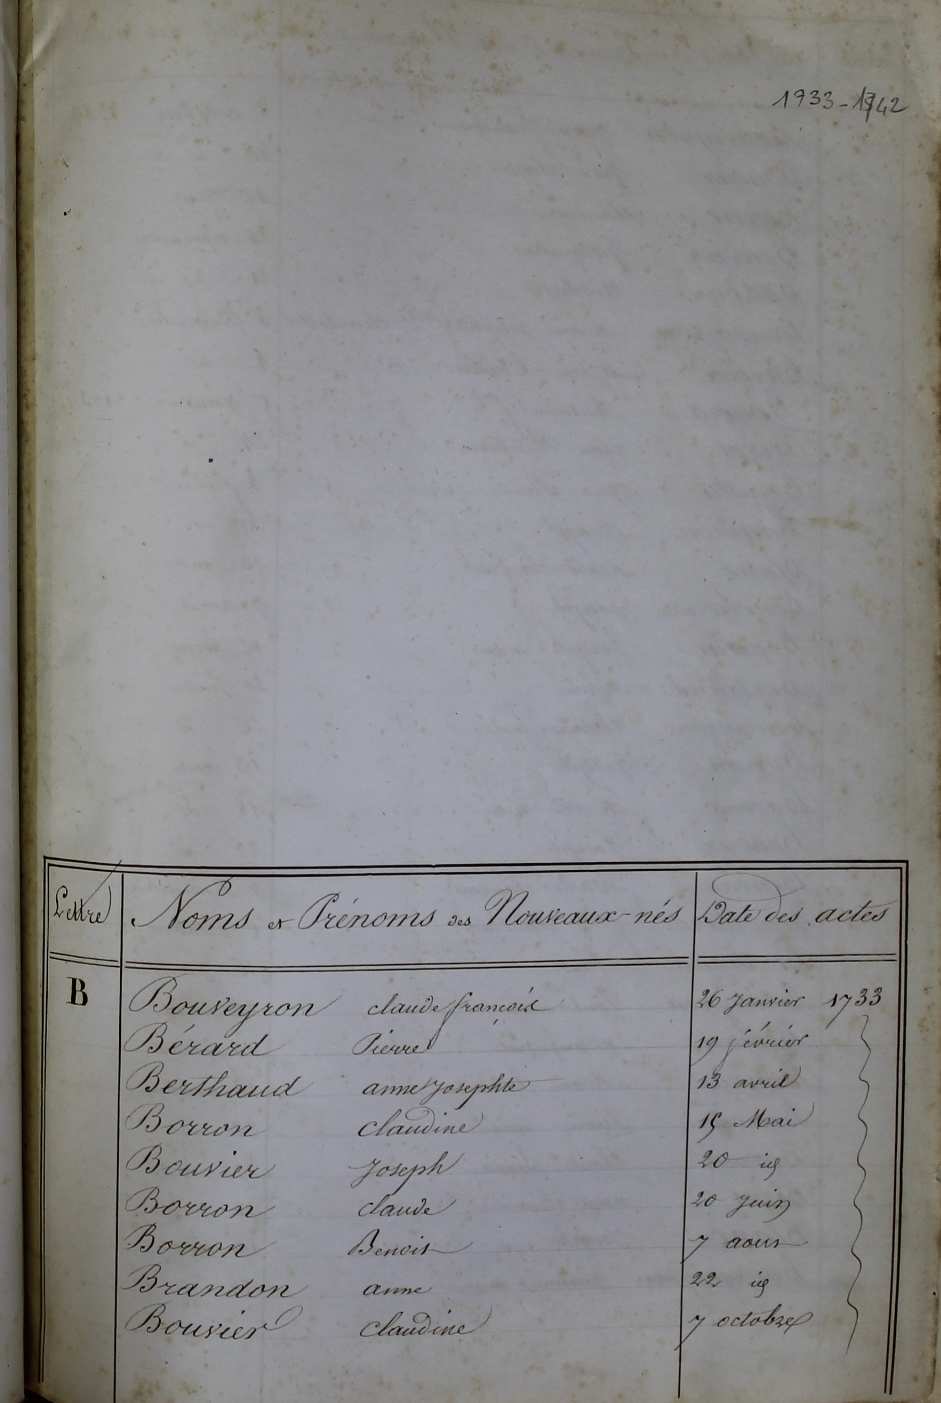 1933-1742
Lettre Noms et Prénoms des Nouveaux-nés Date des actes
B Bouveyron claude françois 26 Janvier 1733
Bérard Pierre 19 février
Berthaud anne Josephte 13 avril
Borron claudine 15 Mai
Bouvier Joseph 20 id
Borron claude 20 Juin
Borron Benoit 7 aout
Brandon anne 22 id
Bouvier claudine 7 octobre